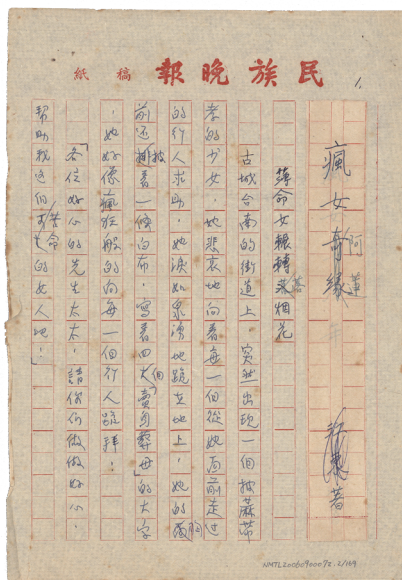 民族晚報 稿紙
1.
瘋女奇緣
阿蓮
著
薄命女輾轉落烟花
古城台南的街道上,突然出現一個披蔴帶
孝的少女,她悲哀地向着每一個從她面前走过
的行人求助,她淚如泉湧地跪在地上,她的胸
前还披着一條白布,寫着四個「賣身葬母」的大字
,她好像瘋狂般的向每一個行人跪拜:
「各位好心的先生太太,請你们做做好心,
帮助我这個苦命的女人地!
NMTL20060900072.2/169